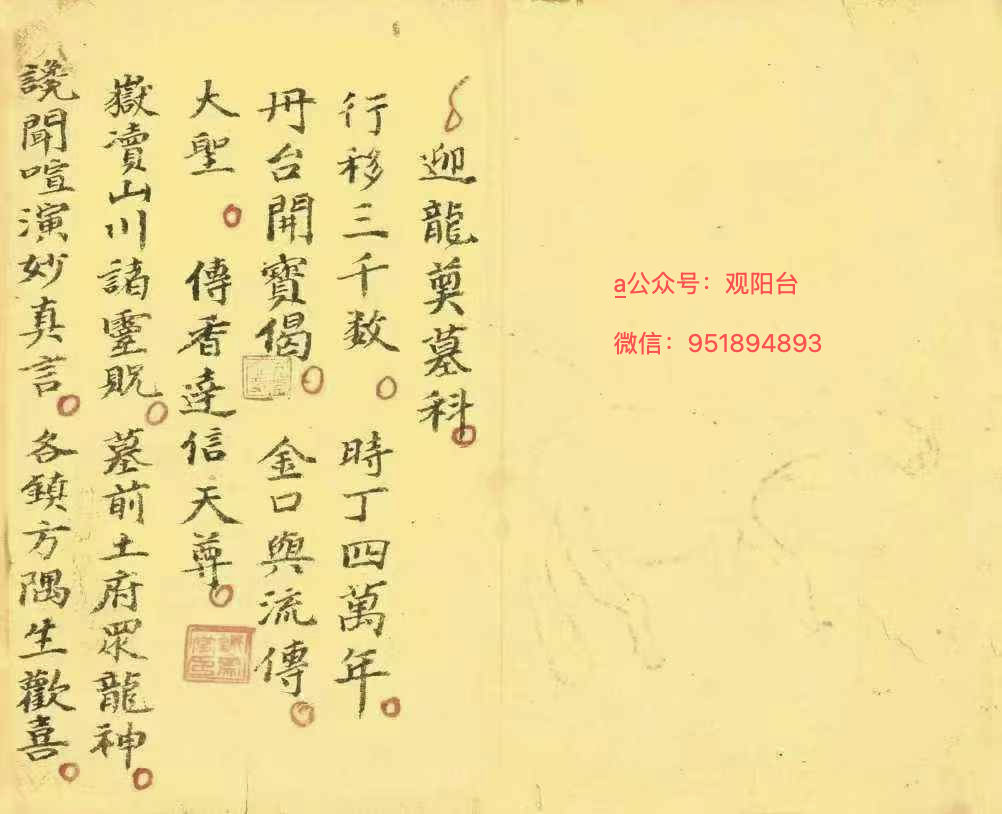 迎龍奠墓科
行移三千数 時丁四萬年
丹台開寶偈 金口與流傳
大聖 傳香達信天尊
嶽瀆山川諸靈貺 墓前土府眾龍神
讒聞喧演妙真言 各鎮方隅生歡喜
a公众号：观阳台
微信：951894893